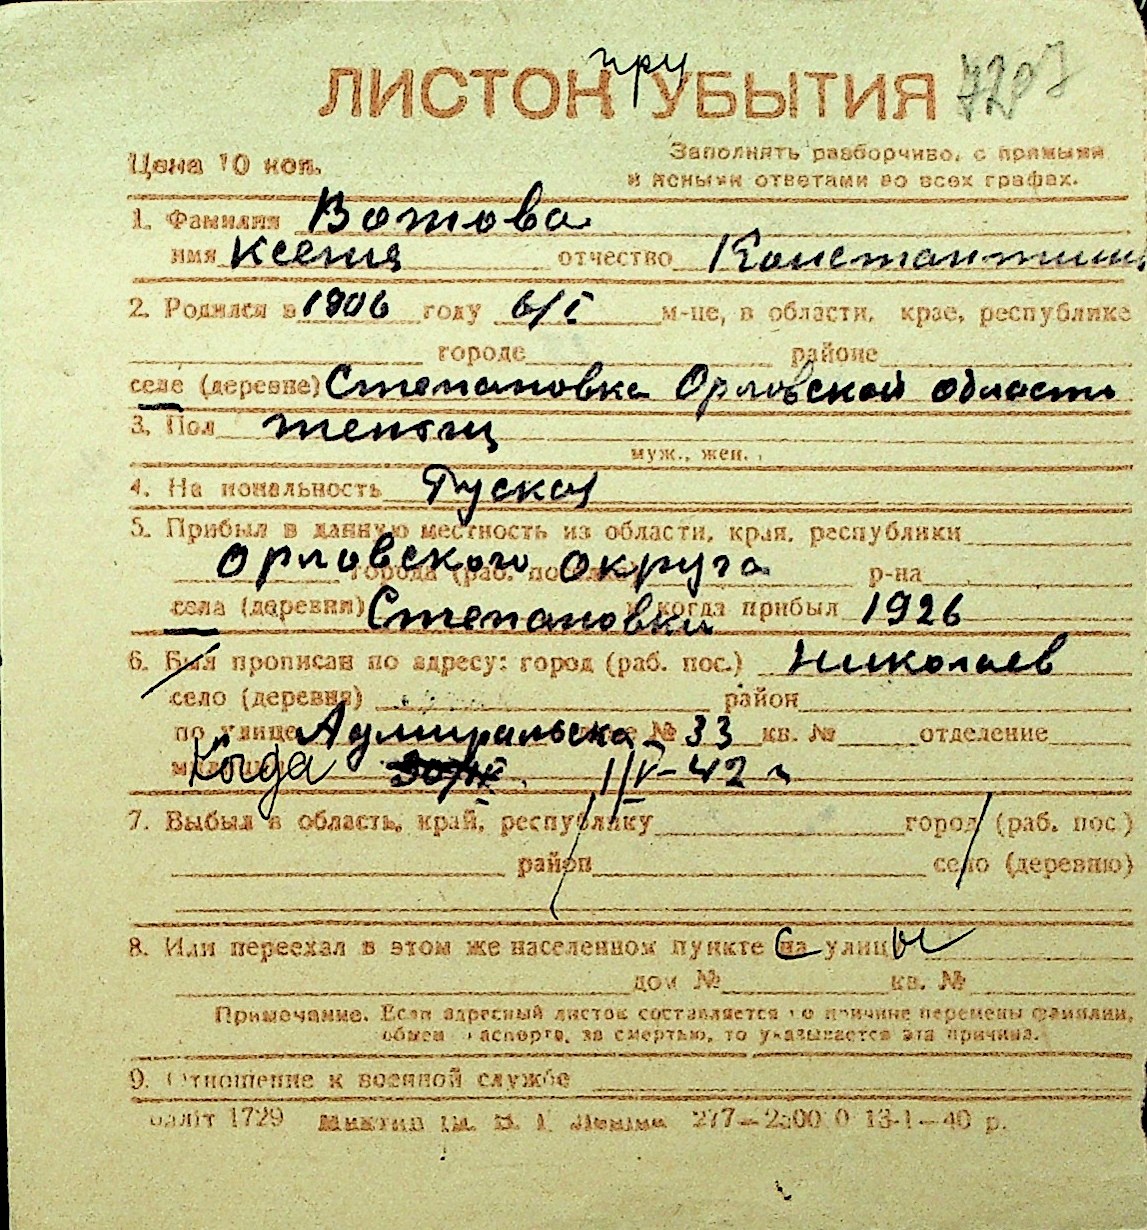 при
ЛИСТОК УБЫТИЯ 7287
Цена 10 коп.
Заполнять разборчиво, с прямыми
и ясными ответами во всех графах.
1. Фамилия Вотова
имя Ксения отчество Константин
2. Родился в 1906 году 6/I м-це, в области, крае, республике
городе районе
селе (деревне) Степановка Орловской области
3. Пол
муж., жен.
4. На иональность Руская
5. Прибыл в данную местность из области, края, республики
Орловского округа
города (раб. р-на
села (деревни) Степановки и когда прибыл 1926
6. Был прописан по адресу: город (раб. пос.) Николаев
село (деревня) район
по улице Адмиральска № 33 кв. № отделение
Когда 1/IV-42 г
7. Выбыл в область, край, республику город (раб. пос.)
район село (деревню)
8. Или переехал в этом же населенном пункте с на улицы
дом № кв. №
Примечание. Если адресный листок составляется по причине перемены фамилии,
обмен паспорта, за смертью, то указывается эта причина.
9. Отношение к военной службе
1729 277—2500 0 13-1—40 р.